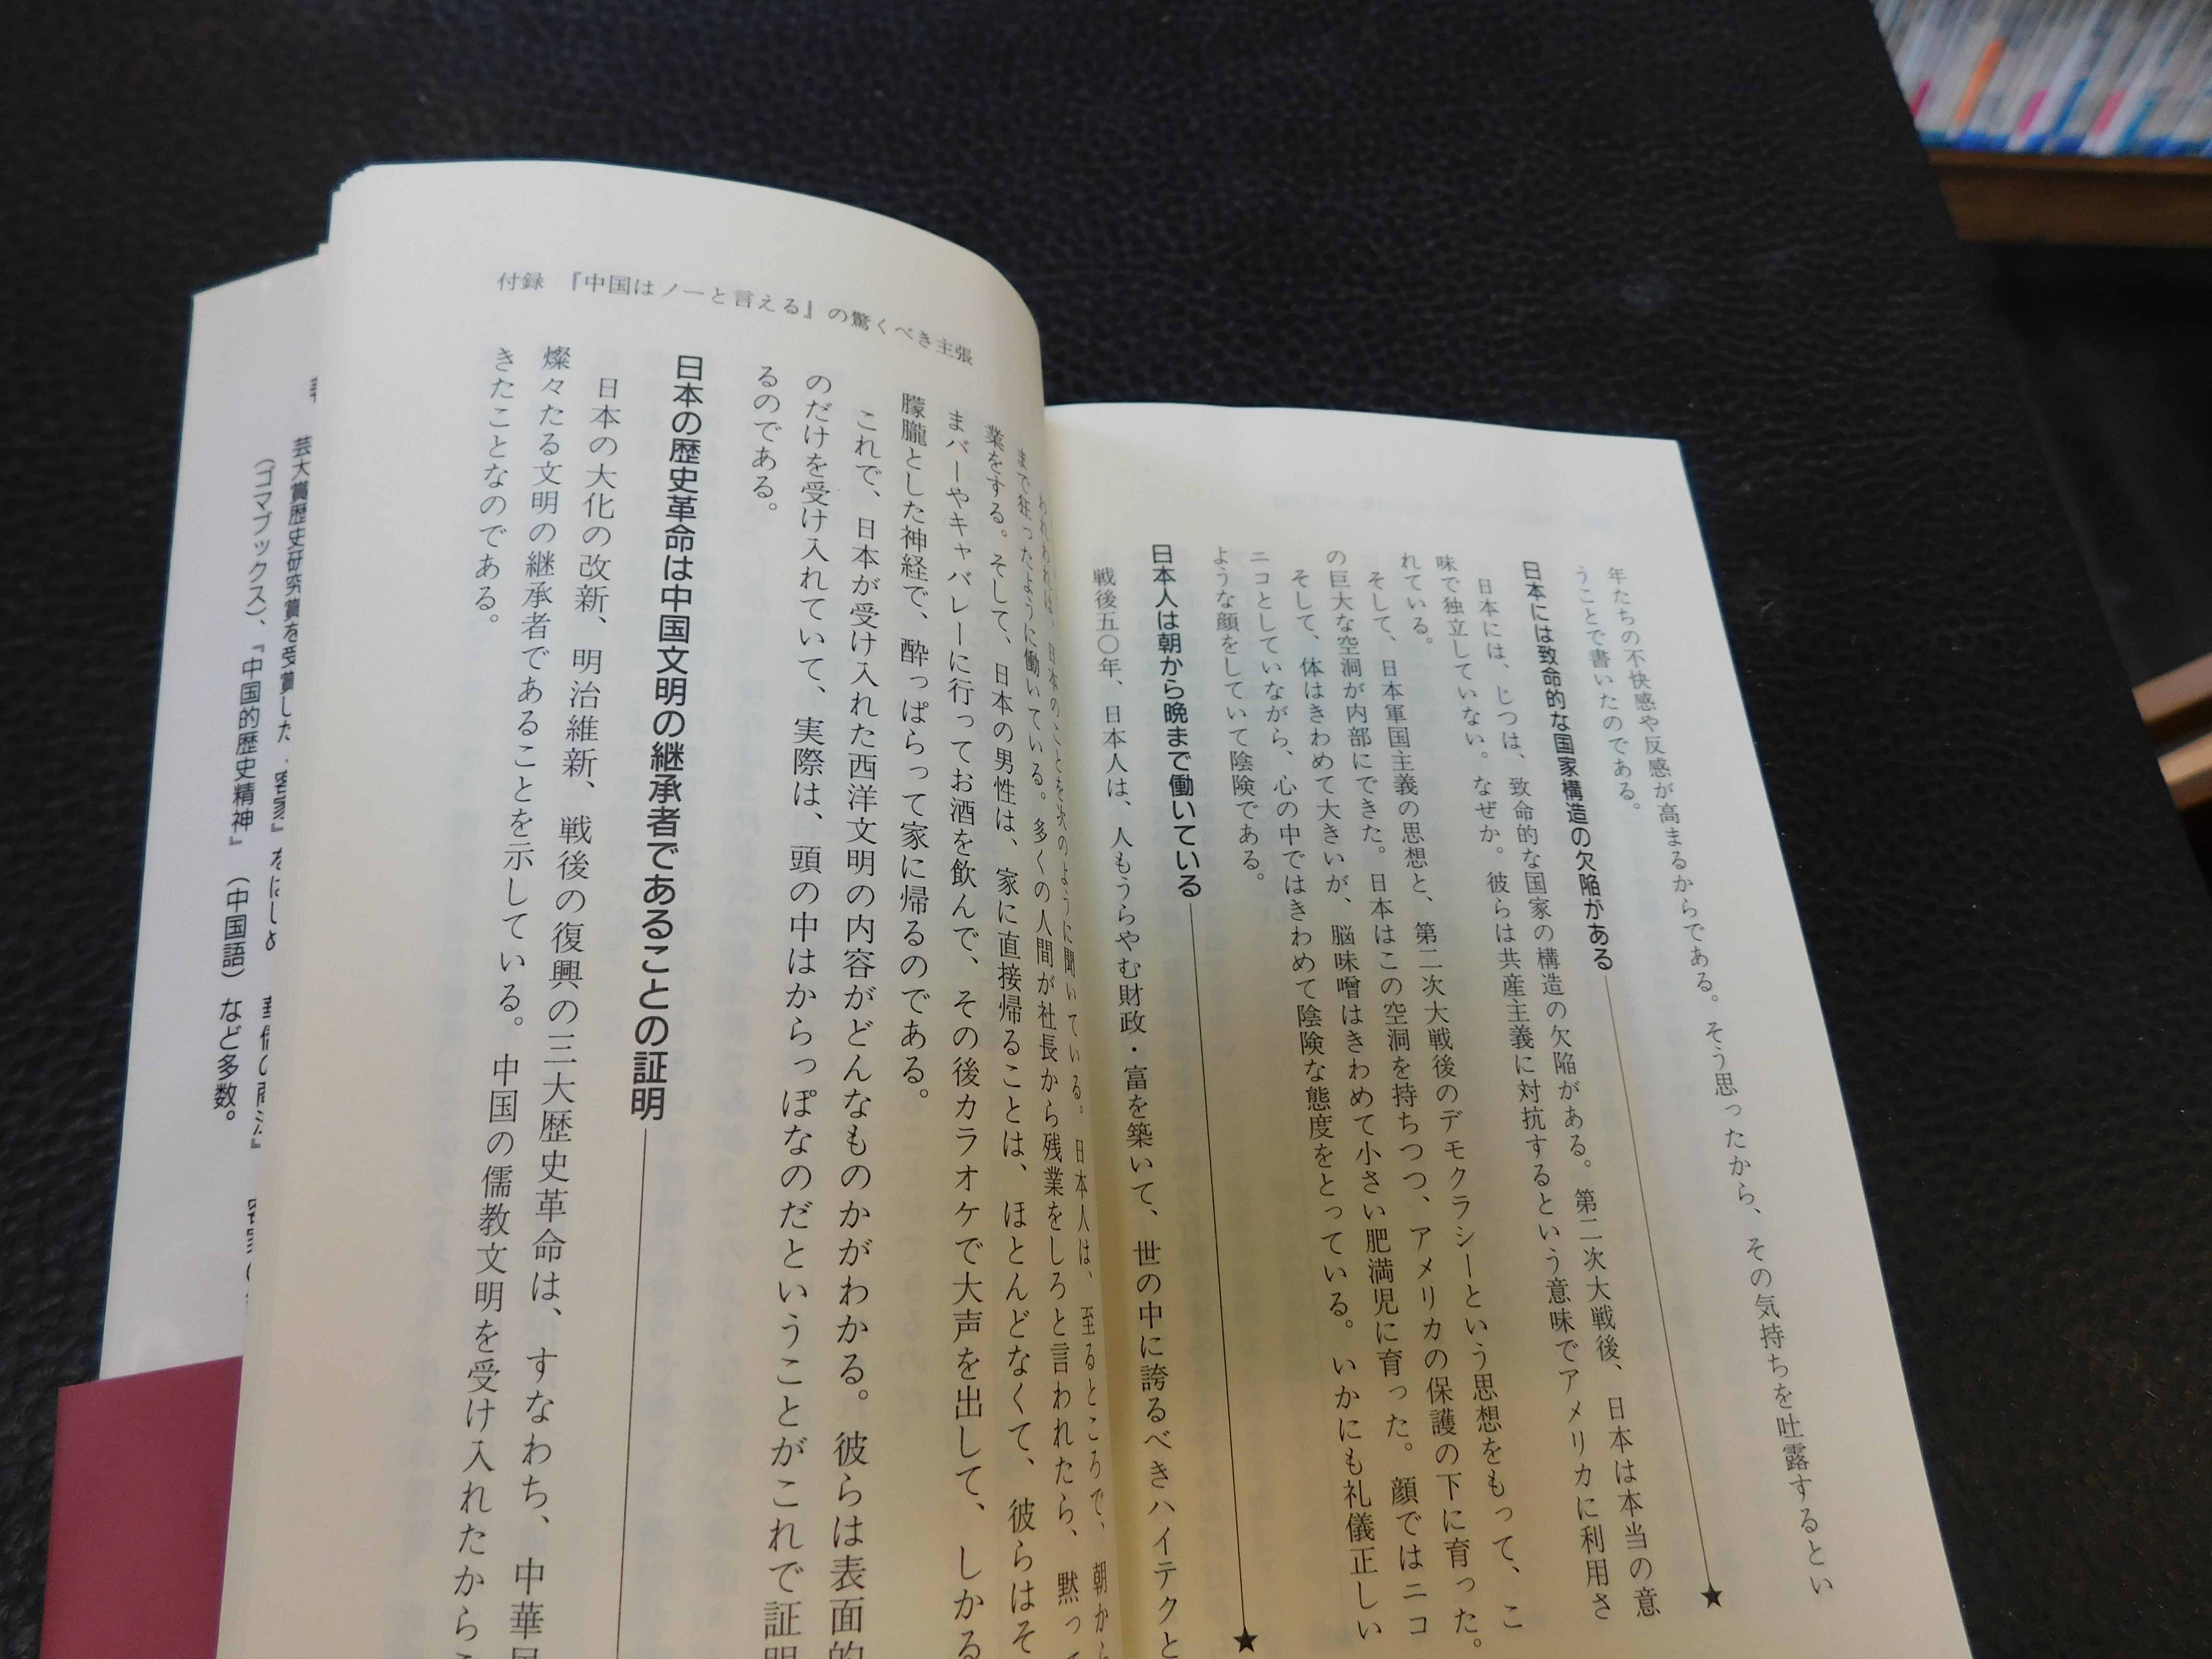 年たちの不快感や反感が高まるからである。そう思ったから、その気持ちを吐露するとい
うことで書いたのである。
日本には致命的な国家構造の欠陥がある ★
日本には、じつは、致命的な国家の構造の欠陥がある。第二次大戦後、日本は本当の意
味で独立していない。なぜか。彼らは共産主義に対抗するという意味でアメリカに利用さ
れている。
そして、日本軍国主義の思想と、第二次大戦後のデモクラシーという思想をもって、こ
の巨大な空洞が内部にできた。日本はこの空洞を持ちつつ、アメリカの保護の下に育った。
そして、体はきわめて大きいが、脳味噌はきわめて小さい肥満児に育った。顔ではニコ
ニコとしていながら、心の中ではきわめて陰険な態度をとっている。いかにも礼儀正しい
ような顔をしていて陰険である。
日本人は朝から晩まで働いている ★
戦後五〇年、日本人は、人もうらやむ財政・富を築いて、世の中に誇るべきハイテクと
付録 『中国はノーと言える』の驚くべき主張
われわれは、日本のことを次のように聞いている。日本人は、至るところで、朝から
まで狂ったように働いている。多くの人間が社長から残業をしろと言われたら、黙って
業をする。そして、日本の男性は、家に直接帰ることは、ほとんどなくて、彼らはそ
まバーやキャバレーに行ってお酒を飲んで、その後カラオケで大声を出して、しかる
朦朧とした神経で、酔っぱらって家に帰るのである。
これで、日本が受け入れた西洋文明の内容がどんなものかがわかる。彼らは表面的
のだけを受け入れていて、実際は、頭の中はからっぽなのだということがこれで証明
るのである。
日本の歴史革命は中国文明の継承者であることの証明
日本の大化の改新、明治維新、戦後の復興の三大歴史革命は、すなわち、中華民
燦々たる文明の継承者であることを示している。中国の儒教文明を受け入れたからこ
きたことなのである。
芸大賞歴史研究賞を受賞した『客家』をはじめ
（ゴマブックス）、『中国的歴史精神』（中国語）など多数。